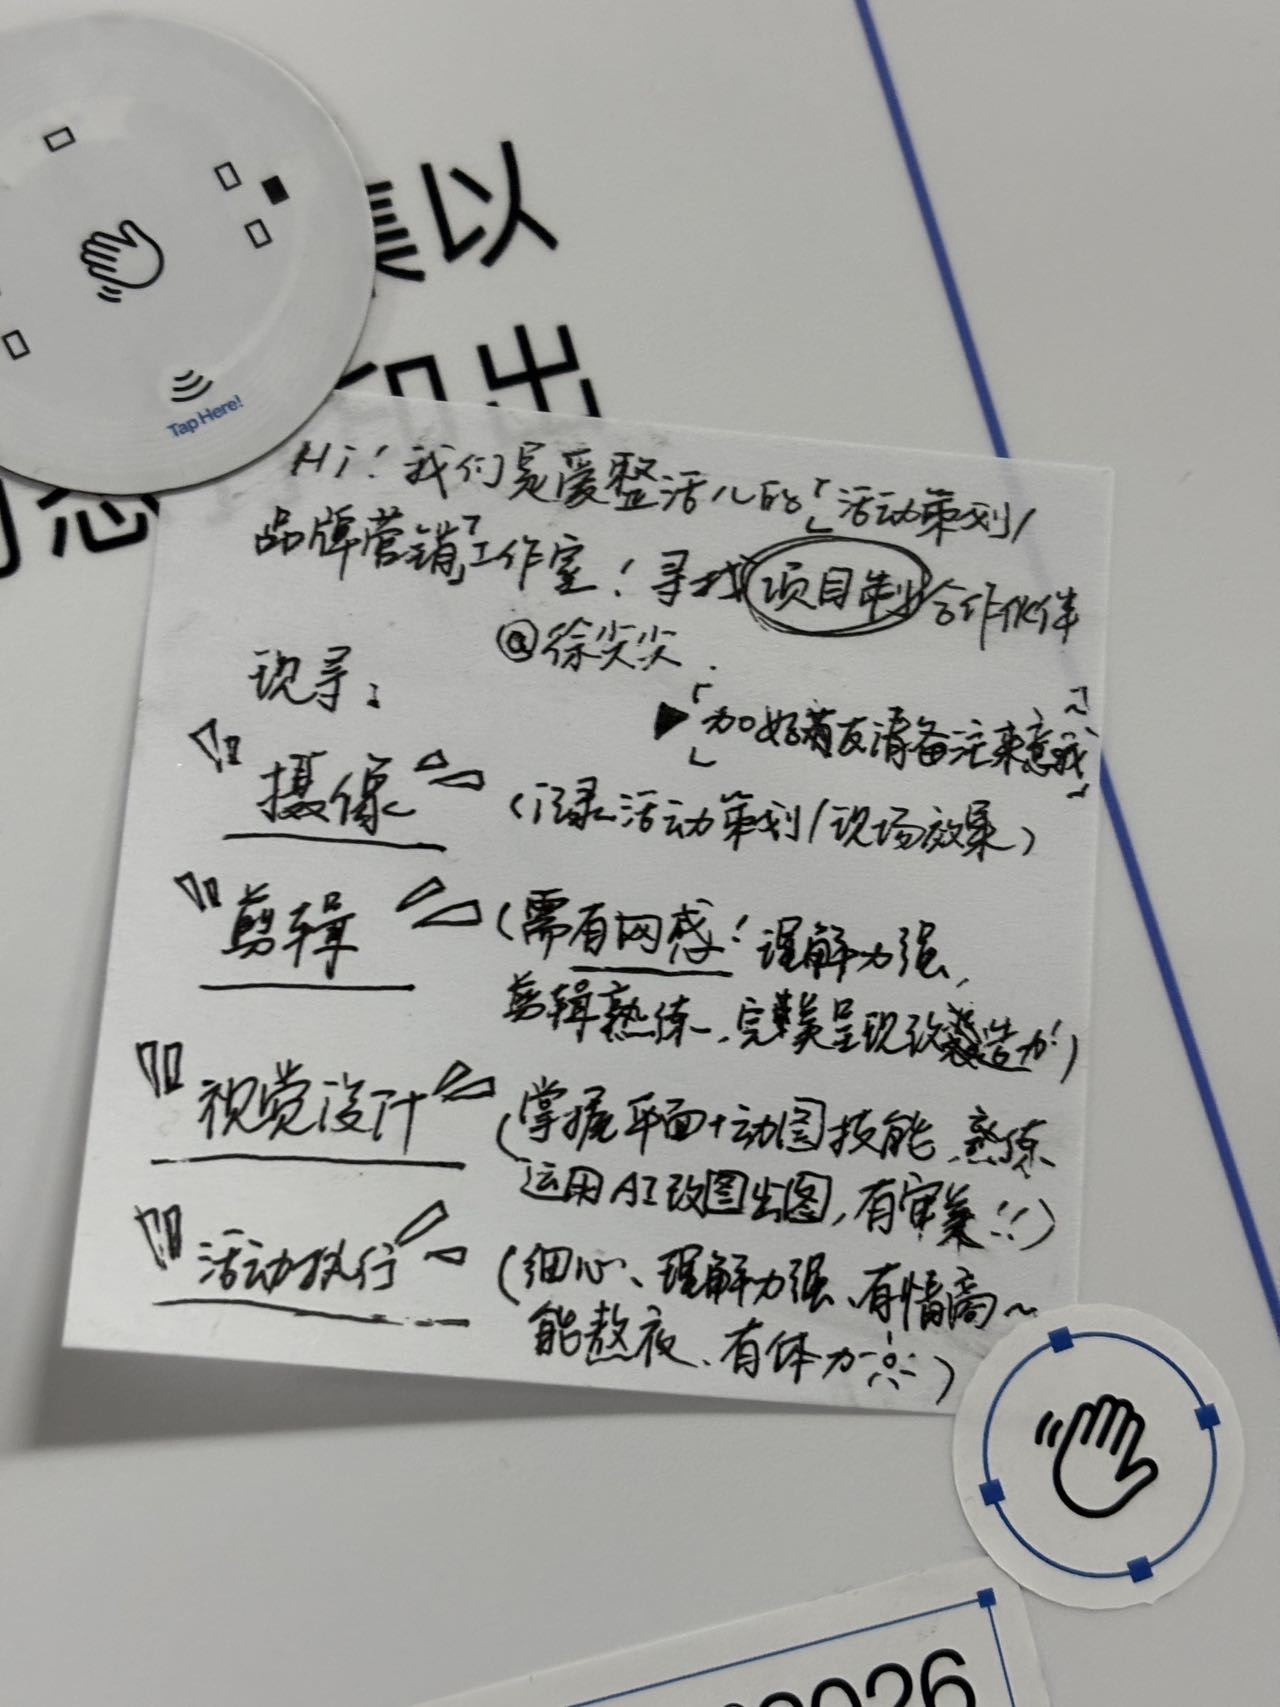 集以
印出
Tap Here!
Hi！我们是爱整活儿的「活动策划/
品牌营销」工作室！寻找项目制合作伙伴
@徐尖尖
现寻：
▶「加好友请备注来意哦~」
摄像（记录活动策划/现场效果）
剪辑（需有网感！理解力强，
剪辑熟练、完美呈现效果
视觉设计（掌握平面+动图技能、熟练
运用AI改图出图，有审美！！）
活动执行（细心、理解力强、有情商~
能熬夜、有体力）
026